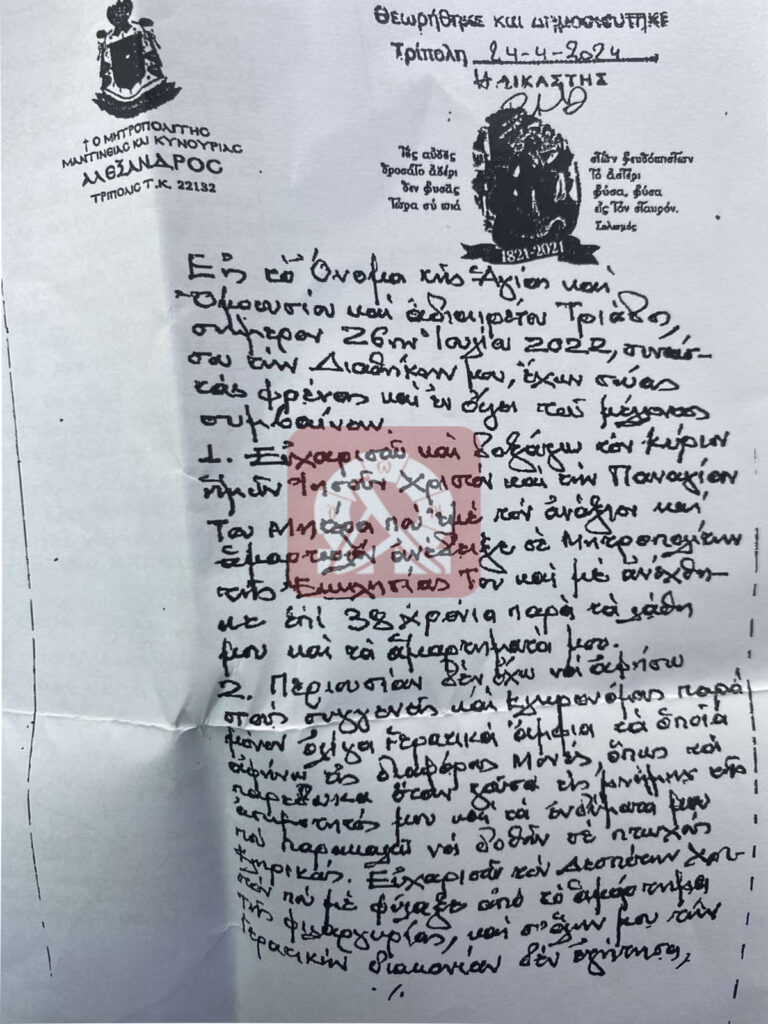 Θεωρήθηκε και Δημοσιεύτηκε
Τρίπολη 24-4-2024
Η ΔΙΚΑΣΤΗΣ
† Ο ΜΗΤΡΟΠΟΛΙΤΗΣ
ΜΑΝΤΙΝΕΙΑΣ ΚΑΙ ΚΥΝΟΥΡΙΑΣ
ΑΛΕΞΑΝΔΡΟΣ
ΤΡΙΠΟΛΙΣ Τ.Κ. 22132
Τῆς αὐγῆς
δροσάτο ἀέρι
δέν φυσᾶς
Τώρα σύ πιά
στῶν ψευδόπιστων
Τό ἀστέρι
φύσα, φύσα
εἰς Τόν σταυρόν.
Σολωμός
1821-2021
Εἰς τό Ὄνομα τῆς Ἁγίας καί
Ὁμοουσίου καί ἀδιαιρέτου Τριάδος,
σήμερον 26ην Ἰουλίου 2022, συντάσ-
σω τήν Διαθήκην μου, ἔχων σώας
τάς φρένας καί ἐν ὄψει τοῦ μέλλοντος
συμβαίνειν.
1. Εὐχαριστῶ καί δοξάζω τόν Κύριον
ἡμῶν Ἰησοῦν Χριστόν καί τήν Παναγίαν
Του Μητέρα πού ἐμέ τόν ἀνάξιον καί
ἁμαρτωλόν ἀνέδειξε σέ Μητροπολίτην
τῆς Ἐκκλησίας Του καί μέ ἀνέχθη-
κε ἐπί 38 χρόνια παρά τά λάθη
μου καί τά ἁμαρτήματά μου.
2. Περιουσίαν δέν ἔχω νά ἀφήσω
στούς συγγενεῖς καί κληρονόμους παρά
μόνον ὀλίγα ἱερατικά ἄμφια τά ὁποῖα
ἀφήνω εἰς διαφόρους Μονές, ὅπως τά
παρέδωκα ὅταν ζοῦσα εἰς μνήμην τῆς
μου καί τά ἐνδύματά μου
πού παρακαλῶ νά δοθοῦν σέ πτωχούς
κληρικούς. Εὐχαριστῶ τόν Δεσπότην Χρι-
στόν πού μέ φύλαξε ἀπό τό ἁμάρτημα
τῆς φιλαργυρίας, καί σ' ὅλην μου τήν
ἱερατικήν διακονίαν δέν ἐζήτησα,
./.